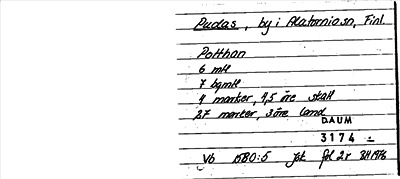 Pudas, by i Alatornio sn, Finl.
Potthan
6 mtl
7 bqmtl
4 marker, 4,5 öre skatt
27 marker, 3 öre land
DAUM
3174 -
Vb 1580:5 fol 2 r